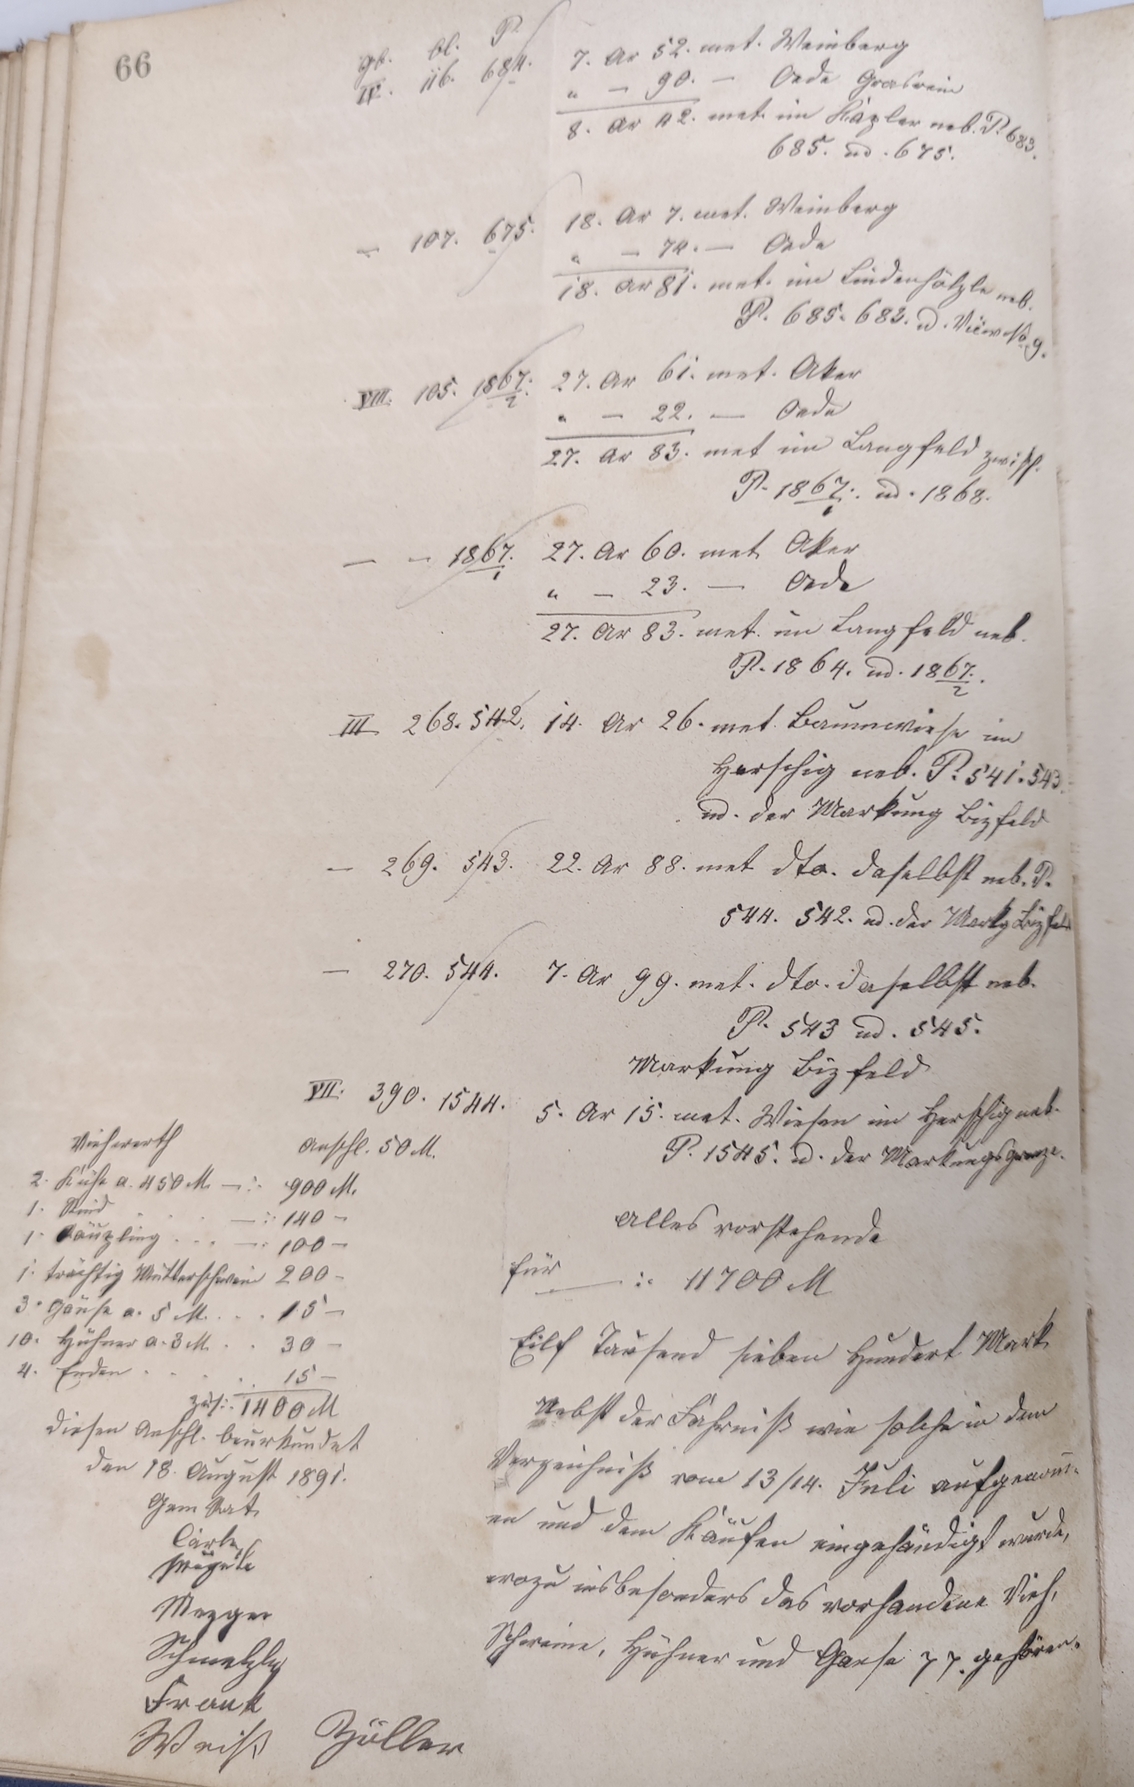 66
gb. bl. P.
IV. 116. 684. 7. Ar 52. met. Weinberg
" — 90. — Oede Grasrain
8. Ar 42. met. im Käzler neb. P. 683.
685. ud. 675.
— 107. 675. 18. Ar 7. met. Weinberg
" — 74. — Oede
18. Ar 81. met. im Lindenhölzle neb.
P. 685. 682. ud. 9.
VIII. 105. 1867/2. 27. Ar 61. met. Aker
" — 22. — Oede
27. Ar 83. met im Langfeld zwisch.
P. 1867/1. ud. 1868.
— — 1867/1. 27. Ar 60. met Aker
" — 23. — Oede
27. Ar 83. met. im Langfeld neb.
P. 1864. ud. 1867/2.
III 268. 542. 14. Ar 26. met. Baumwiese im
Herschig neb. P. 541. 543.
ud. der Markung Bizfeld
— 269. 543. 22. Ar 88. met dto. daselbst neb. P.
544. 542. ud. der Markg Bizfeld
— 270. 544. 7. Ar 99. met. dto. daselbst neb.
P. 543 ud. 545.
Markung Bizfeld
VII. 390. 1544. 5. Ar 15. met. Wiesen im Herschig neb.
P. 1545. ud. der Markungsgrenze.
Alles vorstehende
für — : 11700 M
Eilf Tausend sieben Hundert Mark
Nebst der Fahrniß wie solche in dem
Verzeichniß vom 13/14. Juli aufgenom̄-
en und dem Käufer eingehändigt wurde,
wozu insbesonders das vorhandene Vieh,
Schweine, Hühner und Gänse pp. gehören.
Viehwerth Anschl. 50 M.
2. Kühe a. 450 M. — : 900 M.
1. Rind . . . — : 140 —
1. . . . — : 100 —
1. trächtig Mutterschwein 200 —
3. Gänse a. 5 M. . . 15 —
10. Hühner a. 3 M. . . 30 —
4. Enden . . . . 15 —
zus: 1400 M
diesen Anschl. beurkundet
den 18. August 1891.
Gem. Rat.
Carle
Mezger
Schmelzle
Frank
Weiß Zöller